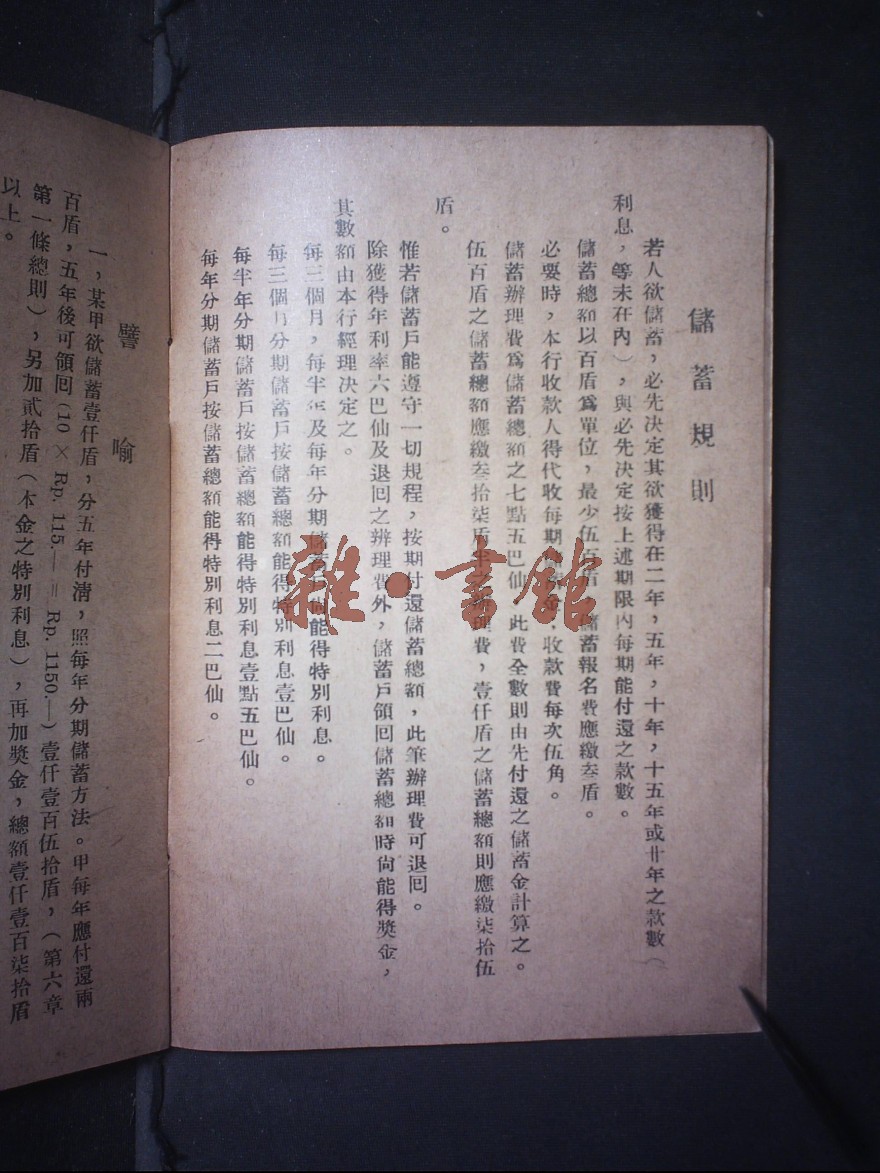 儲蓄規則
若人欲儲蓄，必先决定其欲獲得在二年，五年，十年，十五年或卄年之款數（
利息，等未在內），與必先决定按上述期限內每期能付還之款數。
儲蓄總額以百盾爲單位，最少伍百盾，儲蓄報名費應繳叁盾。
必要時，本行收款人得代收每期儲蓄金，收款費每次伍角。
儲蓄辦理費爲儲蓄總額之七點五巴仙，此費全數則由先付還之儲蓄金計算之。
伍百盾之儲蓄總額應繳叁拾柒盾半之辦理費，壹仟盾之儲蓄總額則應繳柒拾伍
盾。
惟若儲蓄戶能遵守一切規程，按期付還儲蓄總額，此筆辦理費可退囘。
除獲得年利率六巴仙及退囘之辦理費外，儲蓄戶領囘儲蓄總額時尙能得獎金，
其數額由本行經理决定之。
每三個月，每半年及每年分期儲蓄戶尙能得特別利息。
每三個月分期儲蓄戶按儲蓄總額能得特別利息壹巴仙。
每半年分期儲蓄戶按儲蓄總額能得特別利息壹點五巴仙。
每年分期儲蓄戶按儲蓄總額能得特別利息二巴仙。
譬喻
一，某甲欲儲蓄壹仟盾，分五年付清，照每年分期儲蓄方法。甲每年應付還兩
百盾，五年後可領囘（10 × Rp. 115.— = Rp. 1150.—）壹仟壹百伍拾盾，（第六章
第一條總則），另加貳拾盾（本金之特別利息），再加獎金，總額壹仟壹百柒拾盾
以上。
雜·書館